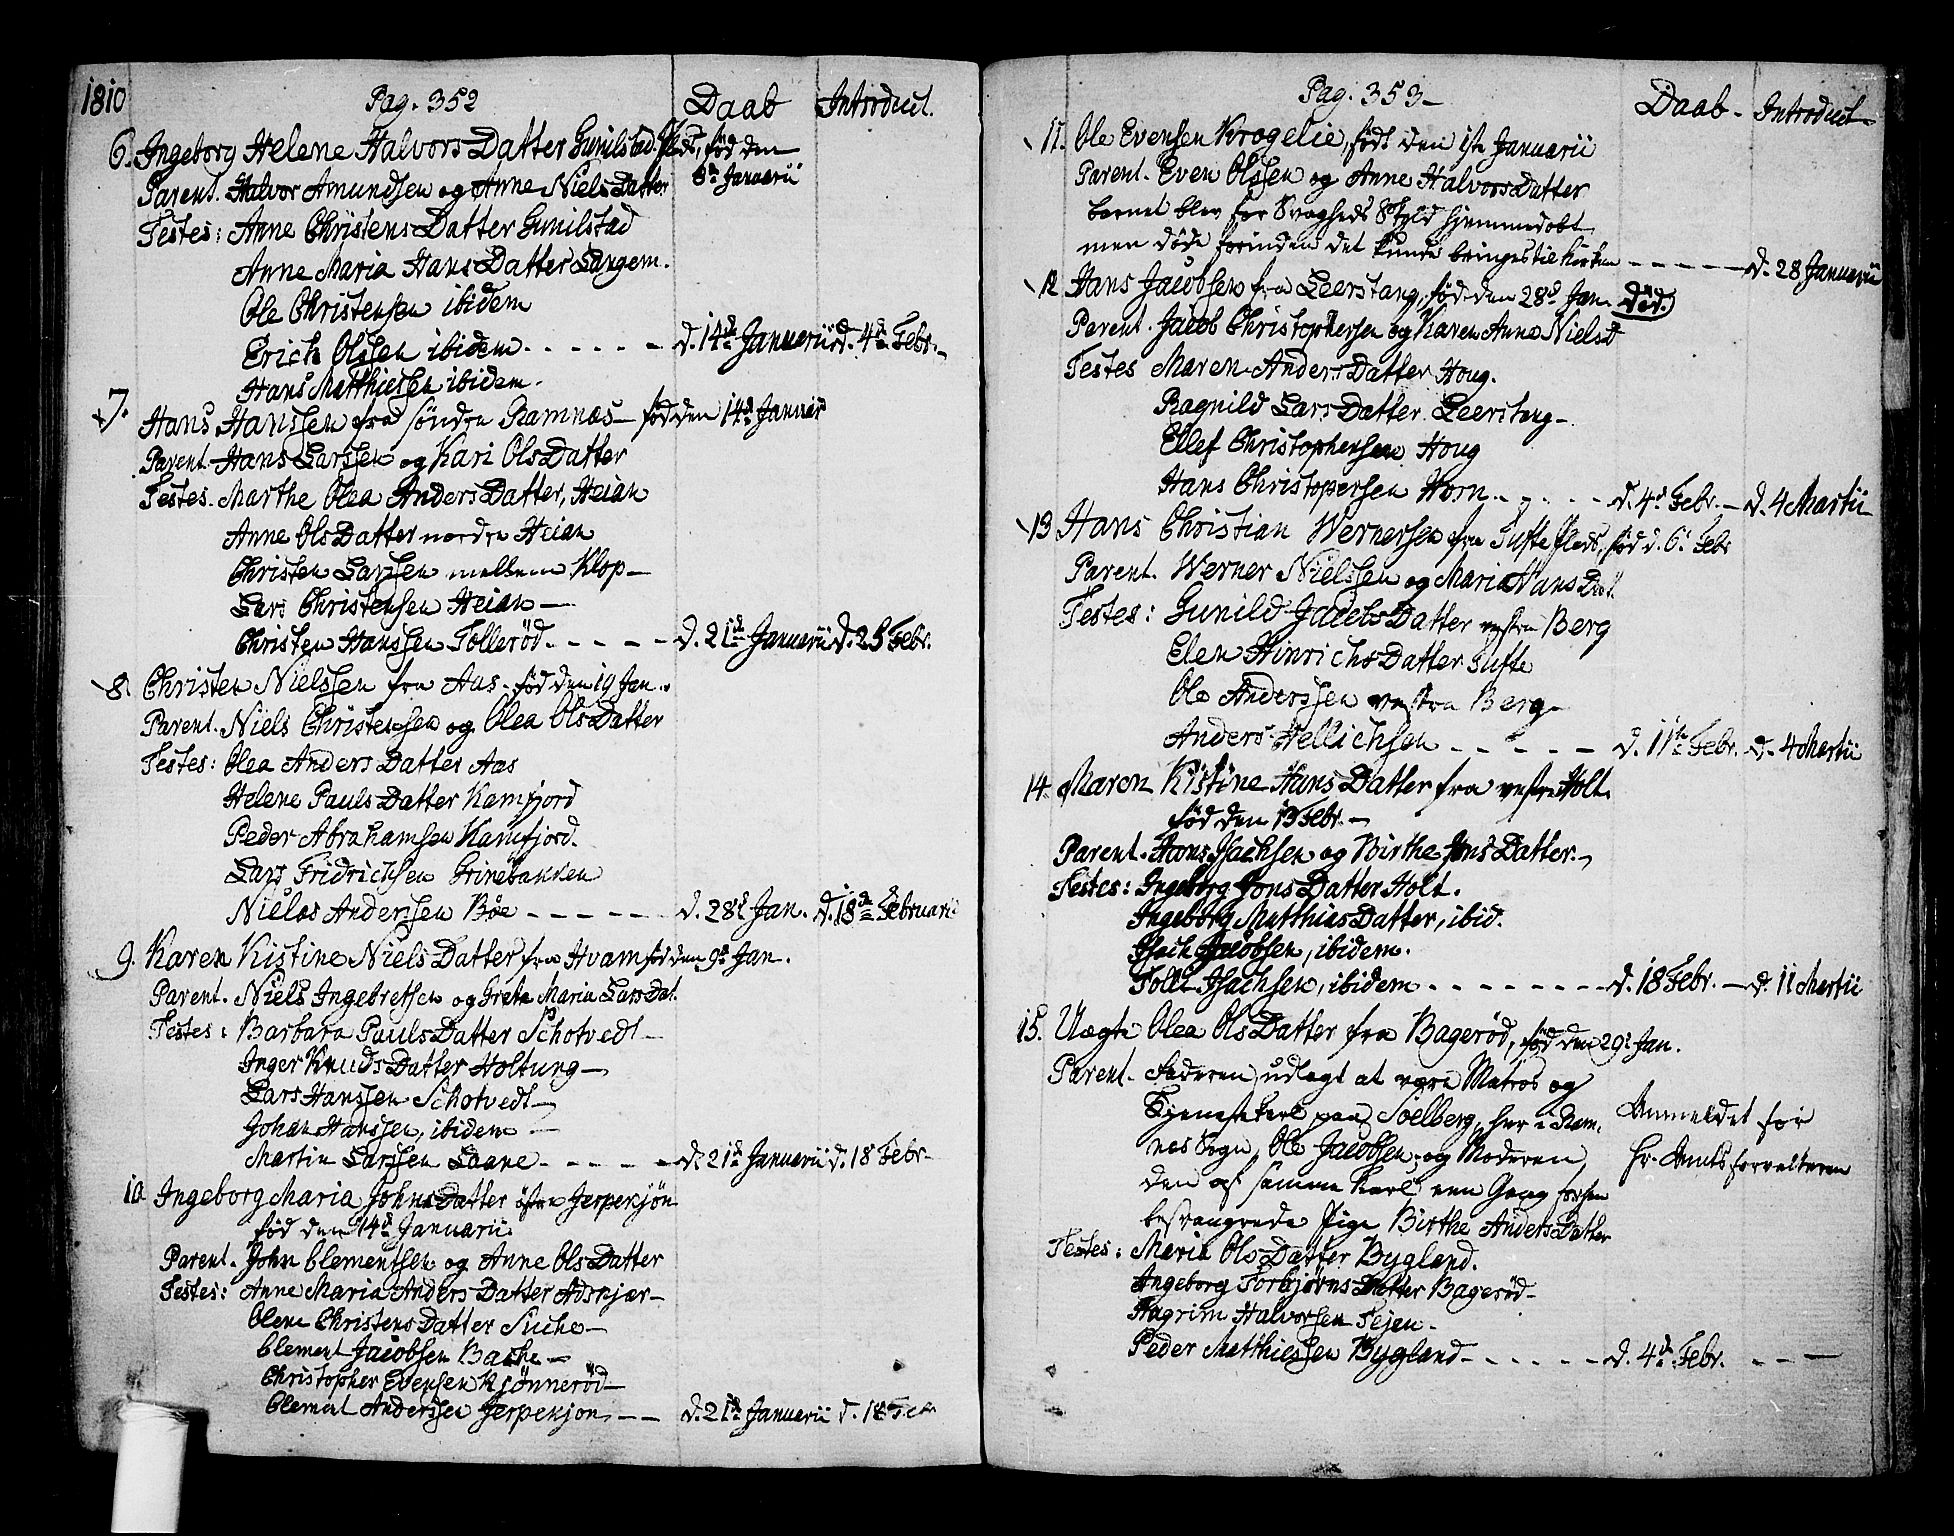 1810
Pag. 352 Daab Introduct.
6. Ingeborg Helene Halvors Datter Gunilstad Pleds, fød den
8de Januarii
Parent. Halvor Amundsen og Anne Niels Datter
Testes: Anne Christens Datter Gunilstad
Anne Maria Hans Datter Langem.
Ole Christensen ibidem
Erich Olssen ibidem. d. 14de Januarii d. 4de Febr.
Hans Matthiesen ibidem.
7. Hans Hanssen fra søndre Ramnæs fød den 14de Januar
Parent. Hans Larssen og Kari Ols Datter
Testes. Marthe Olea Anders Datter, Heian
Anne Ols Datter nordre Heian
Christen Larssen mellem Klop
Lars Christensen Heian
Christen Hanssen Tollerød. d. 21de Januarii d. 25 Febr.
8. Christen Nielssen fra Aas fød den 19 Jan.
Parent. Niels Christensen og Olea Ols Datter
Testes: Olea Anders Datter Aas
Helene Pauls Datter Kamfjord
Peder Abrahamsen Kamfjord.
Lars Fridrichsen Grinebakken
Nielos Anderssen Bøe d. 28d Jan. d. 18de Februarii
9. Karen Kistine Niels Datter fra Hvam fød den 9de Jan.
Parent. Niels Ingebretsen og Grete Maria Lars Dat.
Testes: Barbara Pauls Datter Schotvedt
Inger Knuds Datter Holtung
Lars Hanssen Schotvedt
Johan Hanssen, ibidem
Martin Larssen Laane d. 21de Januarii d. 18 Febr.
10 Ingeborg Maria Johns Datter østre Jerpekjøn
fød den 14de Januarii.
Parent. John Clementsen og Anne Ols Datter
Testes: Anne Maria Anders Datter Adskjær
Olene Christens Datter Suche
Clement Jacobsen Bache
Christopher Evensen Kjønnerød
Clement Anderssen Jerpekjon d. 21de Januarii d. 18 Febr
Pag. 353 Daab Introduct
11. Ole Evensen Krogelie, født den 1ste Januarii
Parent. Even Olssen og Anne Halvors Datter
barnet blev for Svagheds Skyld hjemmedøbt
men døde forinden det kunde bringes til Kirken d. 28 Januarii
12 Hans Jacobsen fra Leerstang, fød den 28d Jan. død.
Parent. Jacob Christophersen og Karen Anne Nielsd
Testes Maren Anders Datter Houg.
Ragnild Lars Datter Leerstang
Ellef Christophersen Houg
Hans Christopersen Horn d. 4d Febr. d. 4 Martii
13 Hans Christian Wernersen fra Tufte Pleds, fød d. 6d Febr
Parent. Werner Nielssen og Maria Hans Dat.
Testes: Gunild Jacobs Datter vestre Berg
Elen Hinrichs Datter Tufte
Ole Anderssen vestre Berg
Anders Hellichsen d. 11te Febr. d. 4 Martii
14. Maren Kistine Hans Datter fra vestre Holt
fød den 13 Febr.
Parent. Hans Isachsen og Birthe Jons Datter.
Testes: Ingeborg Jons Datter Holt.
Ingeborg Matthias Datter, ibid.
Isach Jacobsen, ibidem.
Tolli Isachsen, ibidem d. 18 Febr. d. 11 Martii
15. Uægte Olea Ols Datter fra Bagerød, fød den 29d Jan.
Parent. Faderen, udlagt at være Matros og
Tjenestekarl paa Soelberg, her i Ram, Anmeldet for
næs Sogn, Ole Jacobsen, og Moderen Hr. Amtsforvalteren
den af samme Karl een Gang forhen
besvangrede Pige Birthe Anders Datter
Testes: Maria Ols Datter Bygland.
Ingeborg Torbjørns Datter Bagerød
Hagrim Halvorsen Fejen
Peder Matthiessen Bygland d. 4de Febr.